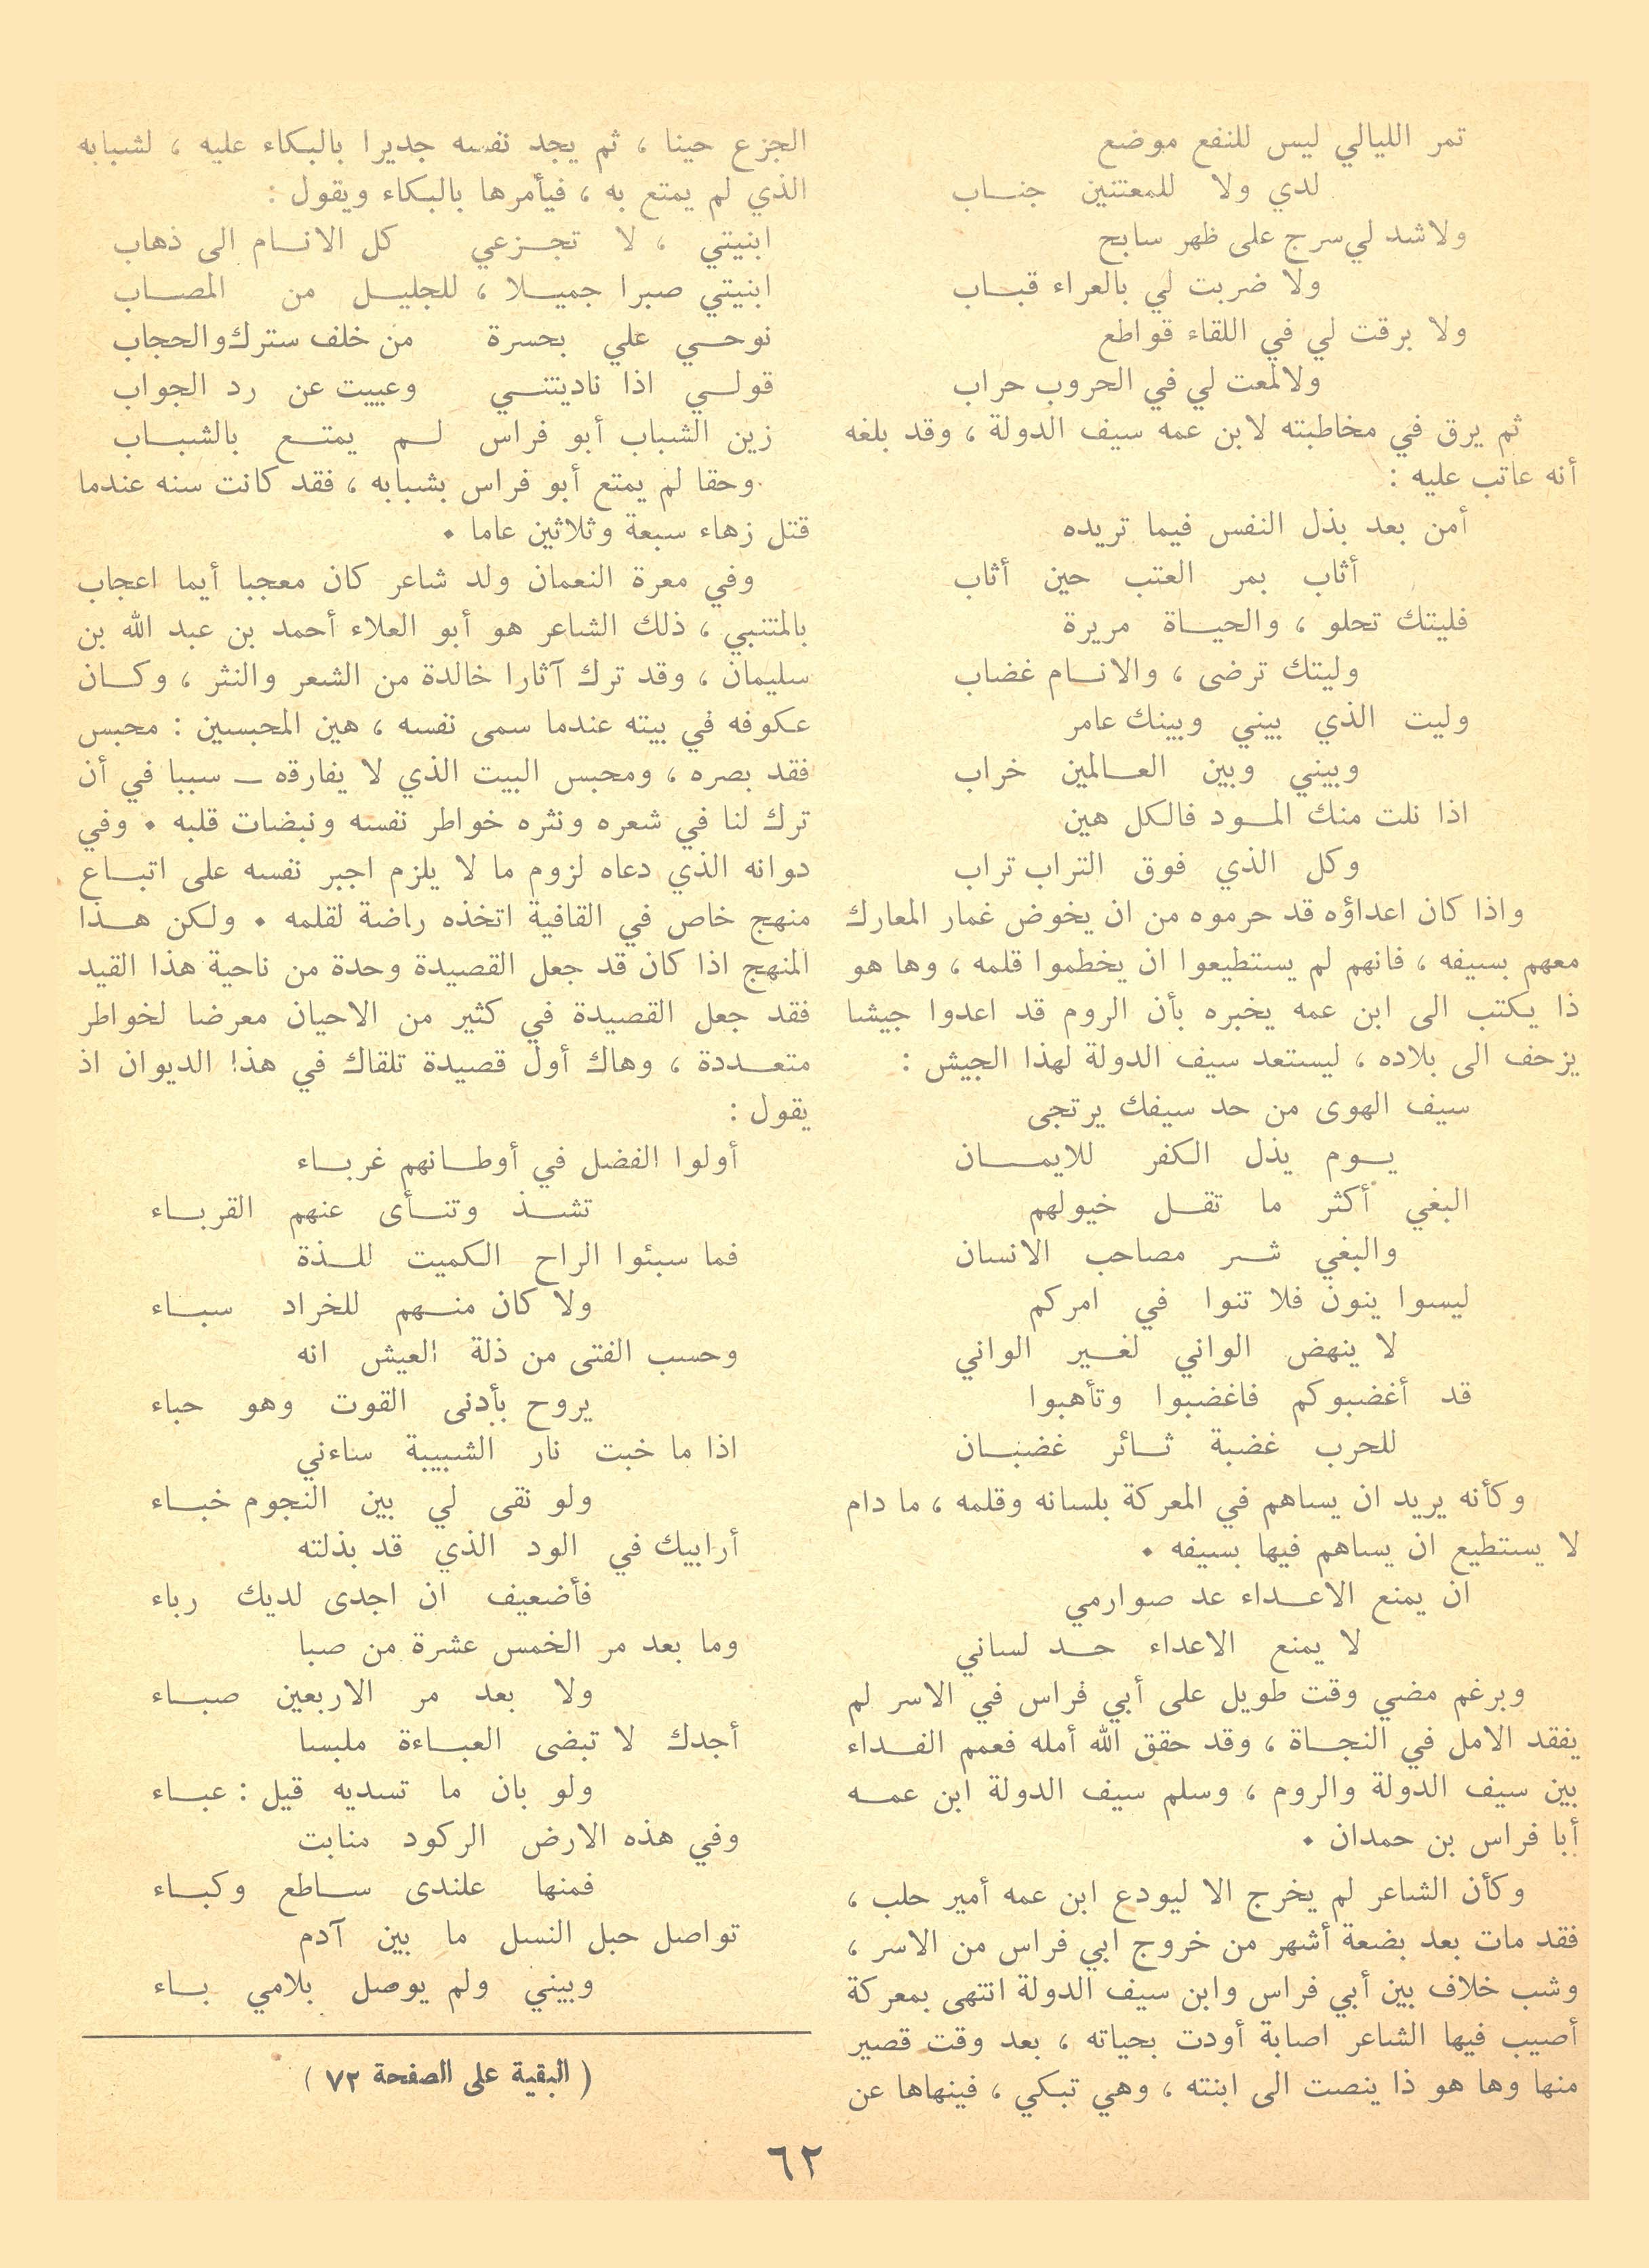 تمر الليالي ليس للنفع موضع
لدي ولا للمعتفين جنـاب
ولاشد لي سرج على ظهر سابح
ولا ضربت لي بالعراء قبـاب
ولا برقت لي في اللقاء قواطع
ولالمعت لي في الحروب حراب
ثم يرق في مخاطبته لابن عمه سيف الدولة ، وقد بلغه
أنه عاتب عليه :
أمن بعد بذل النفس فيما تريده
أثاب بمر العتب حين أثاب
فليتك تحلو ، والحيـاة مريرة
وليتك ترضى ، والانـام غضاب
وليت الذي بيني وبينك عامر
وبيني وبين العـالمين خراب
اذا نلت منك المـود فالكل هين
وكل الذي فوق التراب تراب
واذا كان اعداؤه قد حرموه من ان يخوض غمار المعارك
معهم بسيفه ، فانهم لم يستطيعوا ان يخطموا قلمه ، وها هو
ذا يكتب الى ابن عمه يخبره بأن الروم قد اعدوا جيشا
يزحف الى بلاده ، ليستعد سيف الدولة لهذا الجيش :
سيف الهوى من حد سيفك يرتجى
يـوم يذل الكفر للايمـان
البغي أكثر ما تقـل خيولهم
والبغي شـر مصاحب الانسان
ليسوا ينون فلا تنوا في امركم
لا ينهض الواني لغـير الواني
قد أغضبوكم فاغضبوا وتأهبوا
للحرب غضبة ثـائر غضبـان
وكأنه يريد ان يساهم في المعركة بلسانه وقلمه ، ما دام
لا يستطيع ان يساهم فيها بسيفه ٠
ان يمنع الاعـداء عد صوارمي
لا يمنع الاعداء حـد لساني
وبرغم مضي وقت طويل على أبي فراس في الاسر لم
يفقد الامل في النجـاة ، وقد حقق الله أمله فعمم الفـداء
بين سيف الدولة والروم ، وسلم سيف الدولة ابن عمـه
أبا فراس بن حمدان ٠
وكأن الشاعر لم يخرج الا ليودع ابن عمه أمير حلب ،
فقد مات بعد بضعة أشهر من خروج ابي فراس من الاسر ،
وشب خلاف بين أبي فراس وابن سيف الدولة انتهى بمعركة
أصيب فيها الشاعر اصابة أودت بحياته ، بعد وقت قصير
منها وها هو ذا ينصت الى ابنته ، وهي تبكي ، فينهاها عن
الجزع حينا ، ثم يجد نفسه جديرا بالبكاء عليه ، لشبابه
الذي لم يمتع به ، فيأمرها بالبكاء ويقول :
ابنيتي ، لا تجـزعي كل الانـام الى ذهاب
ابنيتي صبرا جميـلا ، للجليـل من المصـاب
نوحـي علي بحسرة من خلف سترك والحجاب
قولـي اذا ناديتنـي وعييت عن رد الجواب
زين الشباب أبو فراس لـم يمتـع بالشبـاب
وحقا لم يمتع أبو فراس بشبابه ، فقد كانت سنه عندما
قتل زهاء سبعة وثلاثين عاما ٠
وفي معرة النعمان ولد شاعر كان معجبا أيما اعجاب
بالمتنبي ، ذلك الشاعر هو أبو العلاء أحمد بن عبد الله بن
سليمان ، وقد ترك آثارا خالدة من الشعر والنثر ، وكـان
عكوفه في بيته عندما سمى نفسه ، هين المحبسين : محبس
فقد بصره ، ومحبس البيت الذي لا يفارقه ـ سببا في أن
ترك لنا في شعره ونثره خواطر نفسه ونبضات قلبه ٠ وفي
دوانه الذي دعاه لزوم ما لا يلزم اجبر نفسه على اتبـاع
منهج خاص في القافية اتخذه راضة لقلمه ٠ ولكن هـذا
المنهج اذا كان قد جعل القصيدة وحدة من ناحية هذا القيد
فقد جعل القصيدة في كثير من الاحيان معرضا لخواطر
متعـددة ، وهاك أول قصيدة تلقاك في هذا الديوان اذ
يقول :
أولوا الفضل في أوطـانهم غربـاء
تشـذ وتنـأى عنهم القربـاء
فما سبئوا الراح الكميت للـذة
ولا كان منـهم للخراد سبـاء
وحسب الفتى من ذلة العيش انه
يروح بأدنى القوت وهو حباء
اذا ما خبت نار الشبيبة ساءني
ولو نقى لي بين النجوم خبـاء
أرابيك في الود الذي قد بذلته
فأضعيف ان اجدى لديك رباء
وما بعد مر الخمس عشرة من صبا
ولا بعد مر الاربعين صبـاء
أجدك لا تبضى العبـاءة ملبسا
ولو بان ما تسديه قيل : عبـاء
وفي هذه الارض الركود منابت
فمنها علندى سـاطع وكبـاء
تواصل حبل النسل ما بين آدم
وبيني ولم يوصل بلامي بـاء
( البقية على الصفحة ٧٢ )
٦٢